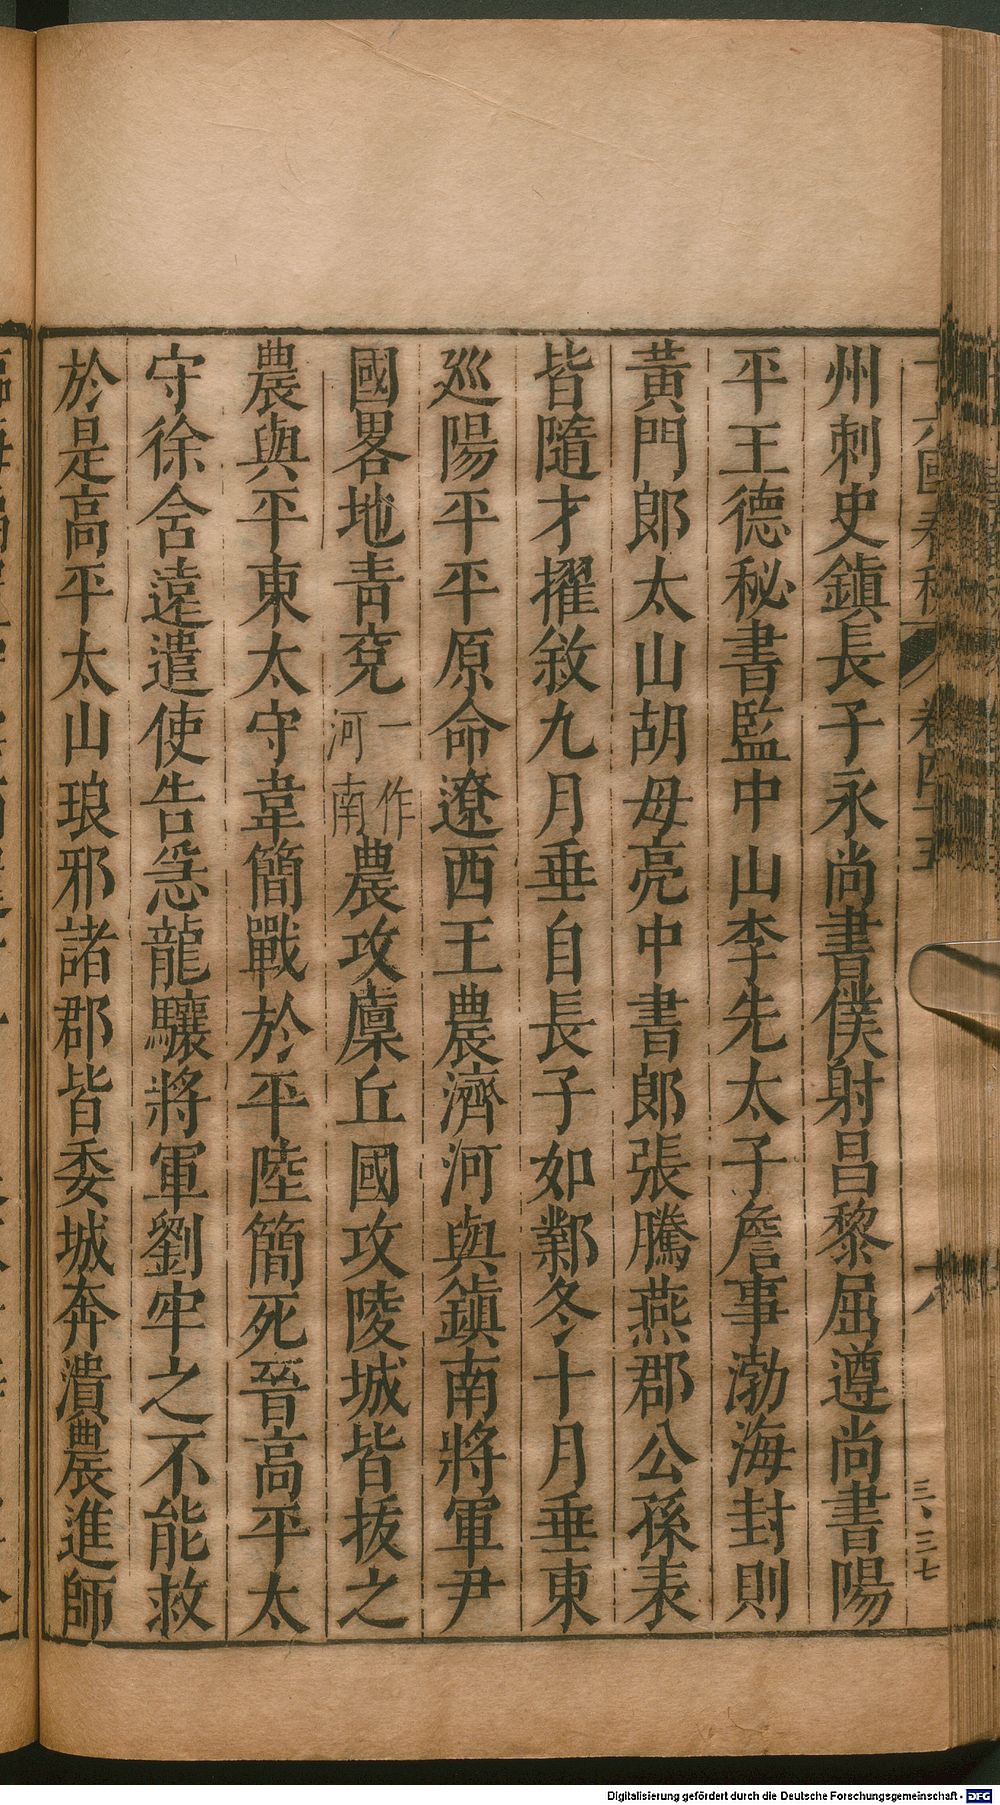 州刺史鎭長子永尚書僕射昌黎屈遵尚書陽
平王德秘書監中山李先太子詹事渤海封則
黃門郎太山胡母亮中書郎張騰燕郡公孫表
皆隨才擢敘九月垂自長子如鄴冬十月垂東
巡陽平平原命遼西王農濟河與鎭南將軍尹
國畧地靑兗一作河南農攻廩丘國攻陵城皆拔之
農與平東太守韋簡戰於平陸簡死晉高平太
守徐含遠遣使告急龍驤將軍劉牢之不能救
於是高平太山琅邪諸郡皆委城奔潰農進師
六國春秋 卷四十五
三、三七
Digitalisierung gefördert durch die Deutsche Forschungsgemeinschaft - DFG